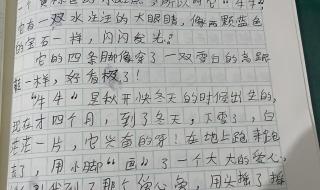 它有一双水汪汪的大眼睛，像两颗蓝色
的宝石一样，闪闪发光。
它的四条脚像穿了一双雪白的高跟
鞋一样，好看极了！
“牛牛”是秋天快冬天的时候出生的，
现在才四个月，到了冬天，下雪了，白
茫茫一片，它兴奋的呀！在地上跑来跑
去了，用小脚“画”了一个大大的爱心，